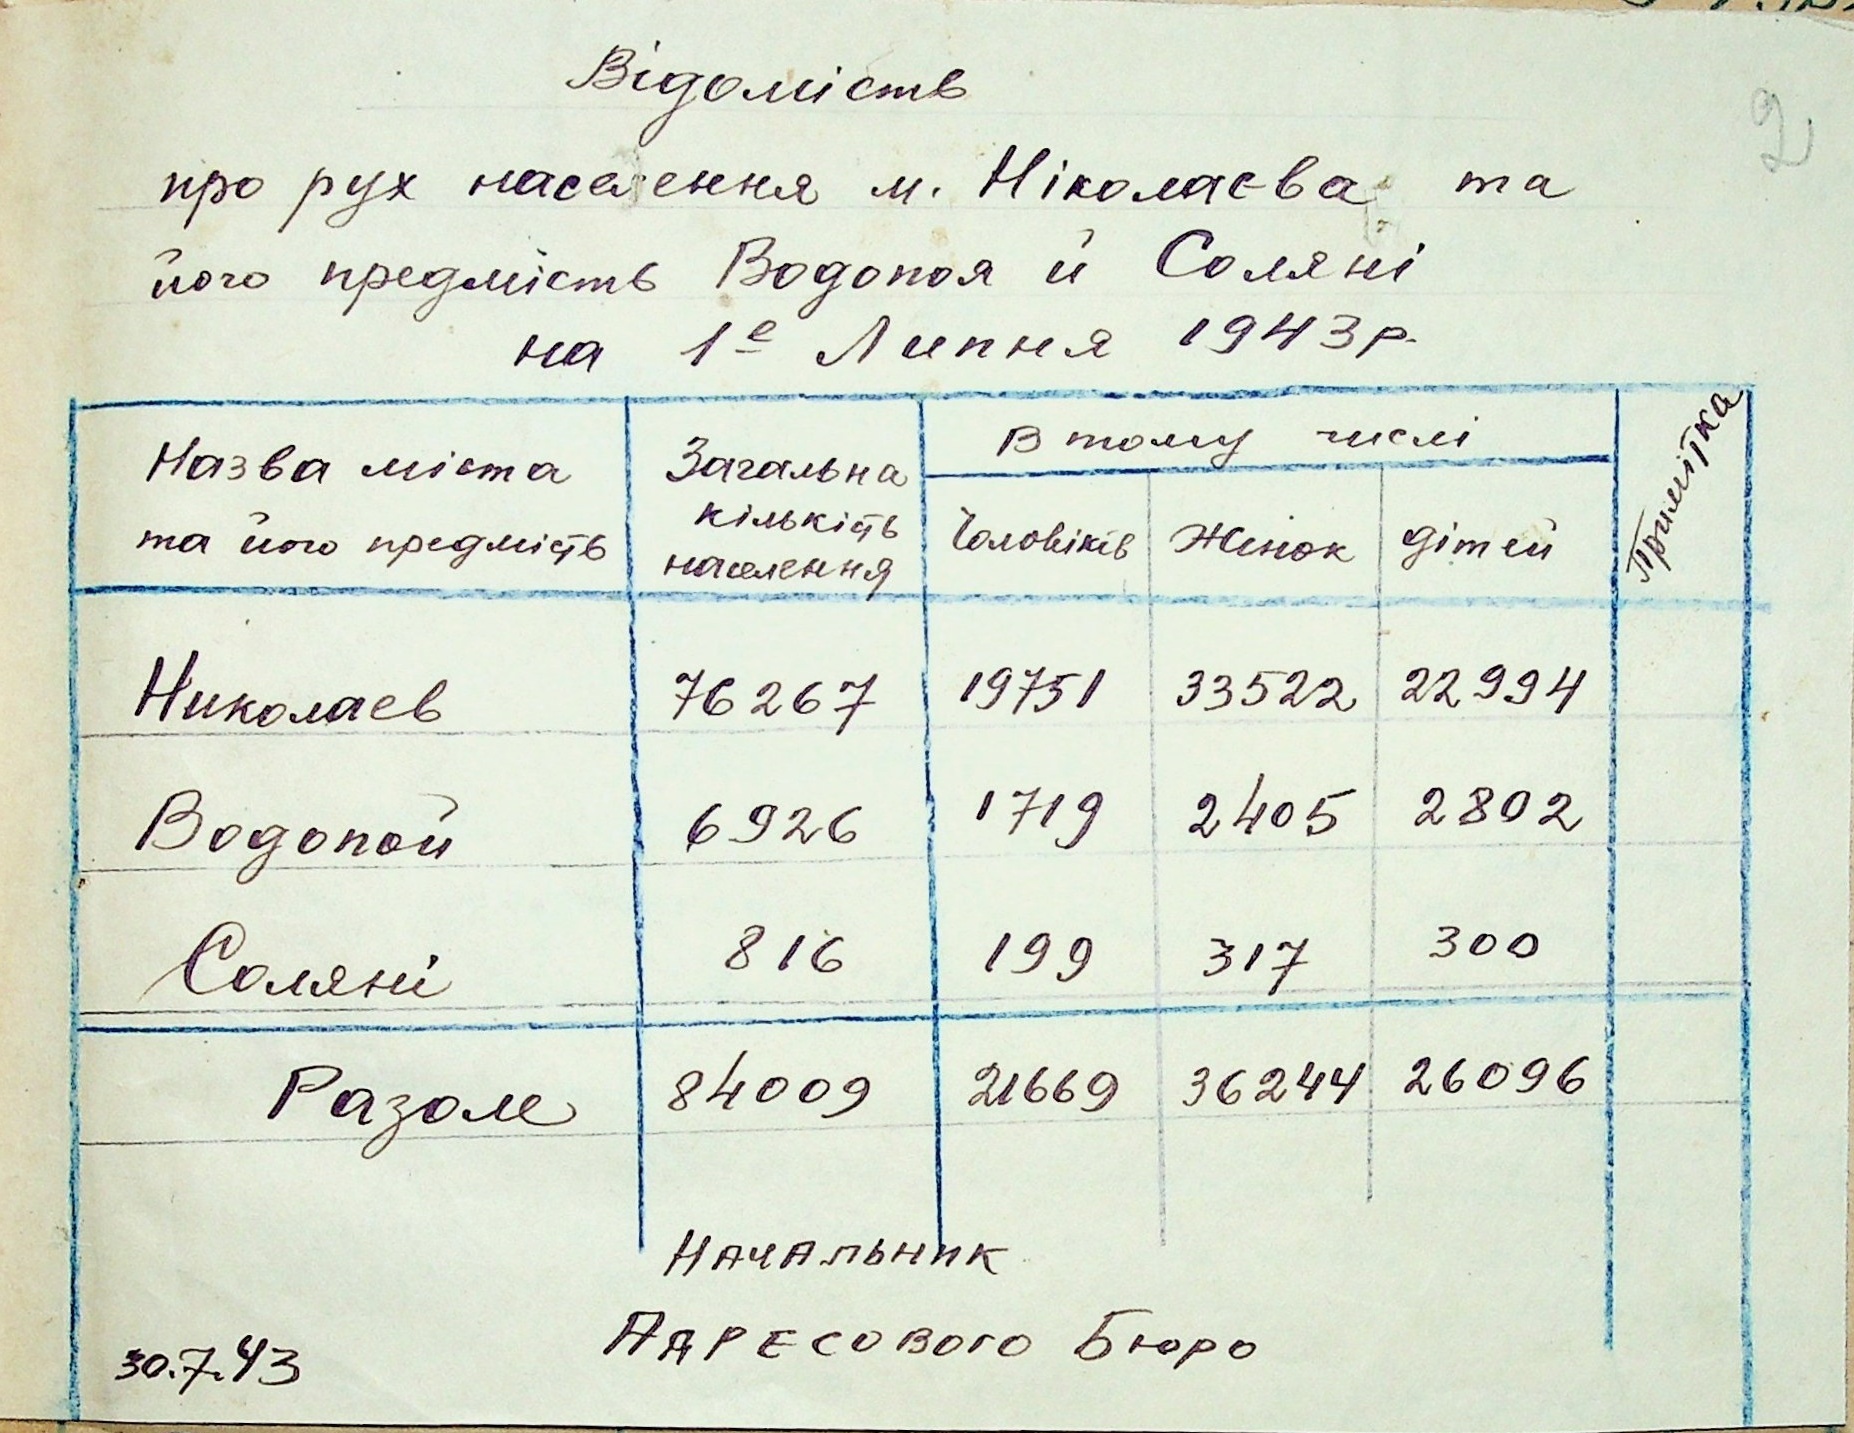 Відомість
2
про рух населення м. Ніколаєва та
його предмість Водопоя й Соляні
на 1е Липня 1943 р.
Назва міста
та його предмість
Загальна
кількість
населення
В тому числі
Чоловіків Жінок дітей
Примітка
Николаев 76267 19751 33522 22994
Водопой 6926 1719 2405 2802
Соляні 816 199 317 300
Разом 84009 21669 36244 26096
Начальник
Адресового Бюро
30.7.43